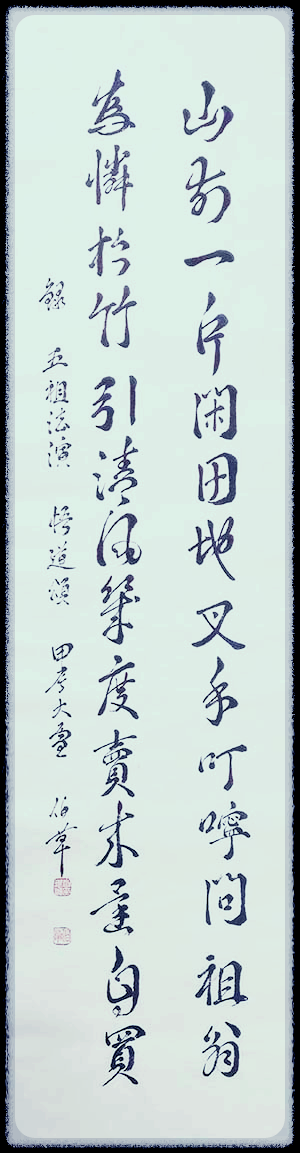 山前一片閑田地叉手叮嚀問祖翁
為憐松竹引清風幾度賣來還自買
錄 五祖法演 悟道頌 甲辰大雪